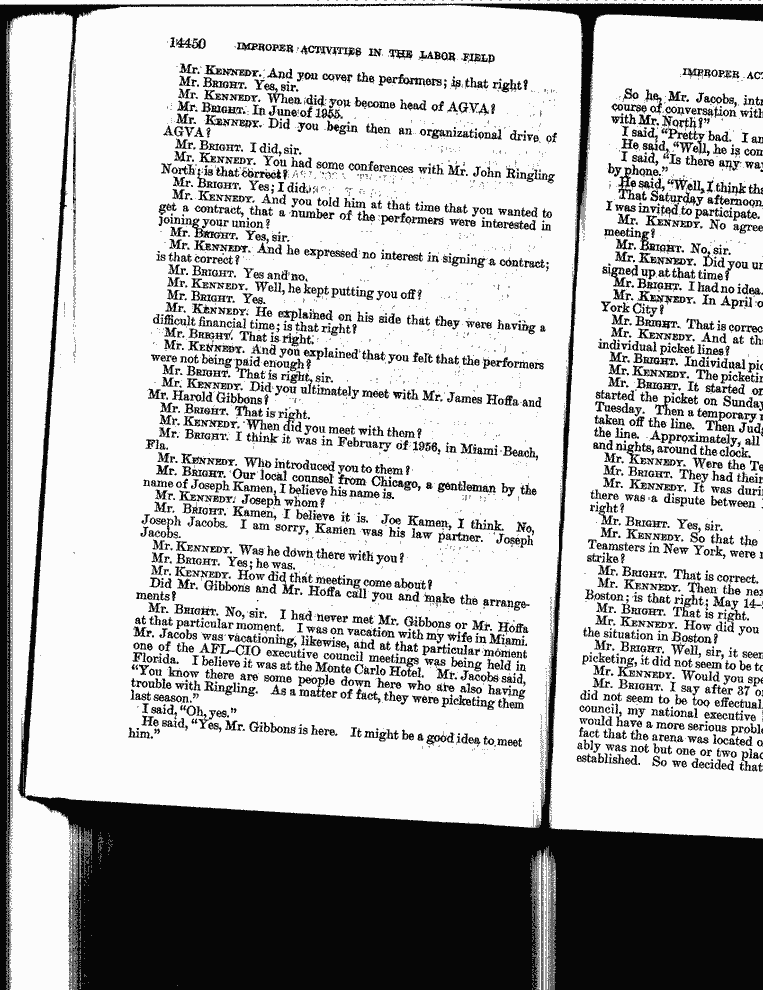 14450 IMPROPER ACTIVITIES IN THE LABOR FIELD
Mr. KENNEDY. And you cover the performers; is that right?
Mr. BRIGHT. Yes, sir.
Mr. KENNEDY. When did you become head of AGVA?
Mr. BRIGHT. In June of 1955.
Mr. KENNEDY. Did you begin then an organizational drive of
AGVA?
Mr. BRIGHT. I did, sir.
Mr. KENNEDY. You had some conferences with Mr. John Ringling
North; is that correct?
Mr. BRIGHT. Yes; I did.
Mr. KENNEDY. And you told him at that time that you wanted to
get a contract, that a number of the performers were interested in
joining your union?
Mr. BRIGHT. Yes, sir.
Mr. KENNEDY. And he expressed no interest in signing a contract;
is that correct?
Mr. BRIGHT. Yes and no.
Mr. KENNEDY. Well, he kept putting you off?
Mr. BRIGHT. Yes.
Mr. KENNEDY. He explained on his side that they were having a
difficult financial time; is that right?
Mr. BRIGHT. That is right.
Mr. KENNEDY. And you explained that you felt that the performers
were not being paid enough?
Mr. BRIGHT. That is right, sir.
Mr. KENNEDY. Did you ultimately meet with Mr. James Hoffa and
Mr. Harold Gibbons?
Mr. BRIGHT. That is right.
Mr. KENNEDY. When did you meet with them?
Mr. BRIGHT. I think it was in February of 1956, in Miami Beach,
Fla.
Mr. KENNEDY. Who introduced you to them?
Mr. BRIGHT. Our local counsel from Chicago, a gentleman by the
name of Joseph Kamen, I believe his name is.
Mr. KENNEDY. Joseph whom?
Mr. BRIGHT. Kamen, I believe it is. Joe Kamen, I think. No,
Joseph Jacobs. I am sorry, Kamen was his law partner. Joseph
Jacobs.
Mr. KENNEDY. Was he down there with you?
Mr. BRIGHT. Yes; he was.
Mr. KENNEDY. How did that meeting come about?
Did Mr. Gibbons and Mr. Hoffa call you and make the arrange-
ments?
Mr. BRIGHT. No, sir. I had never met Mr. Gibbons or Mr. Hoffa
at that particular moment. I was on vacation with my wife in Miami.
Mr. Jacobs was vacationing, likewise, and at that particular moment
one of the AFL-CIO executive council meetings was being held in
Florida. I believe it was at the Monte Carlo Hotel. Mr. Jacobs said,
"You know there are some people down here who are also having
trouble with Ringling. As a matter of fact, they were picketing them
last season."
I said, "Oh, yes."
He said, "Yes, Mr. Gibbons is here. It might be a good idea to meet
him."
IMPROPER
So he, Mr. Jacobs,
course of conversation with
with Mr. North?"
I said, "Pretty bad. I
He said, "Well, he is
I said, "Is there any
by phone."
He said, "Well, I think
That Saturday afternoon,
I was invited to participate.
Mr. KENNEDY. No
meeting?
Mr. BRIGHT. No, sir.
Mr. KENNEDY. Did you
signed up at that time?
Mr. BRIGHT. I had no idea.
Mr. KENNEDY. In April
York City?
Mr. BRIGHT. That is
Mr. KENNEDY. And at
individual picket lines?
Mr. BRIGHT. Individual
Mr. KENNEDY. The
Mr. BRIGHT. It started
started the picket on Sunday
Tuesday. Then a temporary
taken off the line. Then
the line. Approximately, all
and nights, around the clock.
Mr. KENNEDY. Were the
Mr. BRIGHT. They had their
Mr. KENNEDY. It was
there was a dispute between
right?
Mr. BRIGHT. Yes, sir.
Mr. KENNEDY. So that the
Teamsters in New York, were
strike?
Mr. BRIGHT. That is correct.
Mr. KENNEDY. Then the
Boston; is that right; May
Mr. BRIGHT. That is right.
Mr. KENNEDY. How did you
the situation in Boston?
Mr. BRIGHT. Well, sir, it
picketing, it did not seem to be
Mr. KENNEDY. Would you
Mr. BRIGHT. I say after 37
did not seem to be too effectual,
council, my national executive
would have a more serious
fact that the arena was located
ably was not but one or two
established. So we decided that